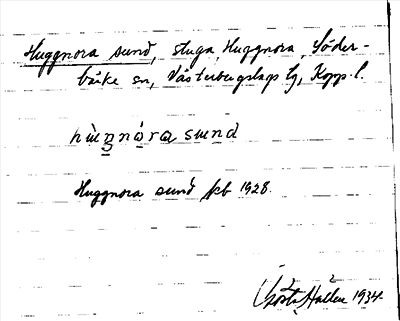 Huggnora sund, stuga, Huggnora, Söder-
bärke sn, Västerbergslags tg, Kopp. l.
hùŋnóra sund
Huggnora sund jkb 1928.
Gösta Hallén 1934.